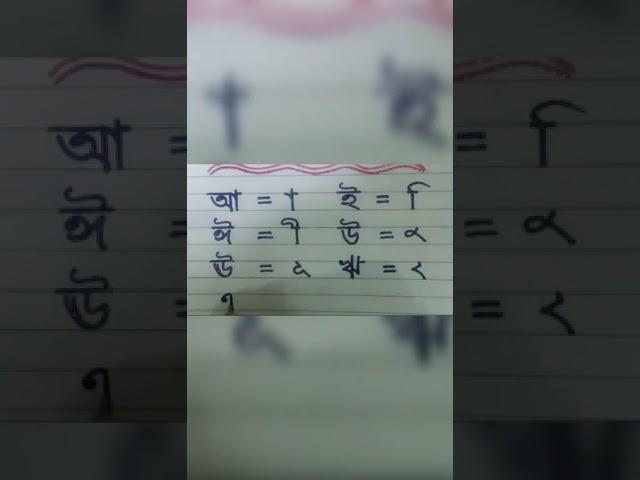 আ = া ই = ি
ঈ = ী উ = ু
ঊ = ূ ঋ = ৃ